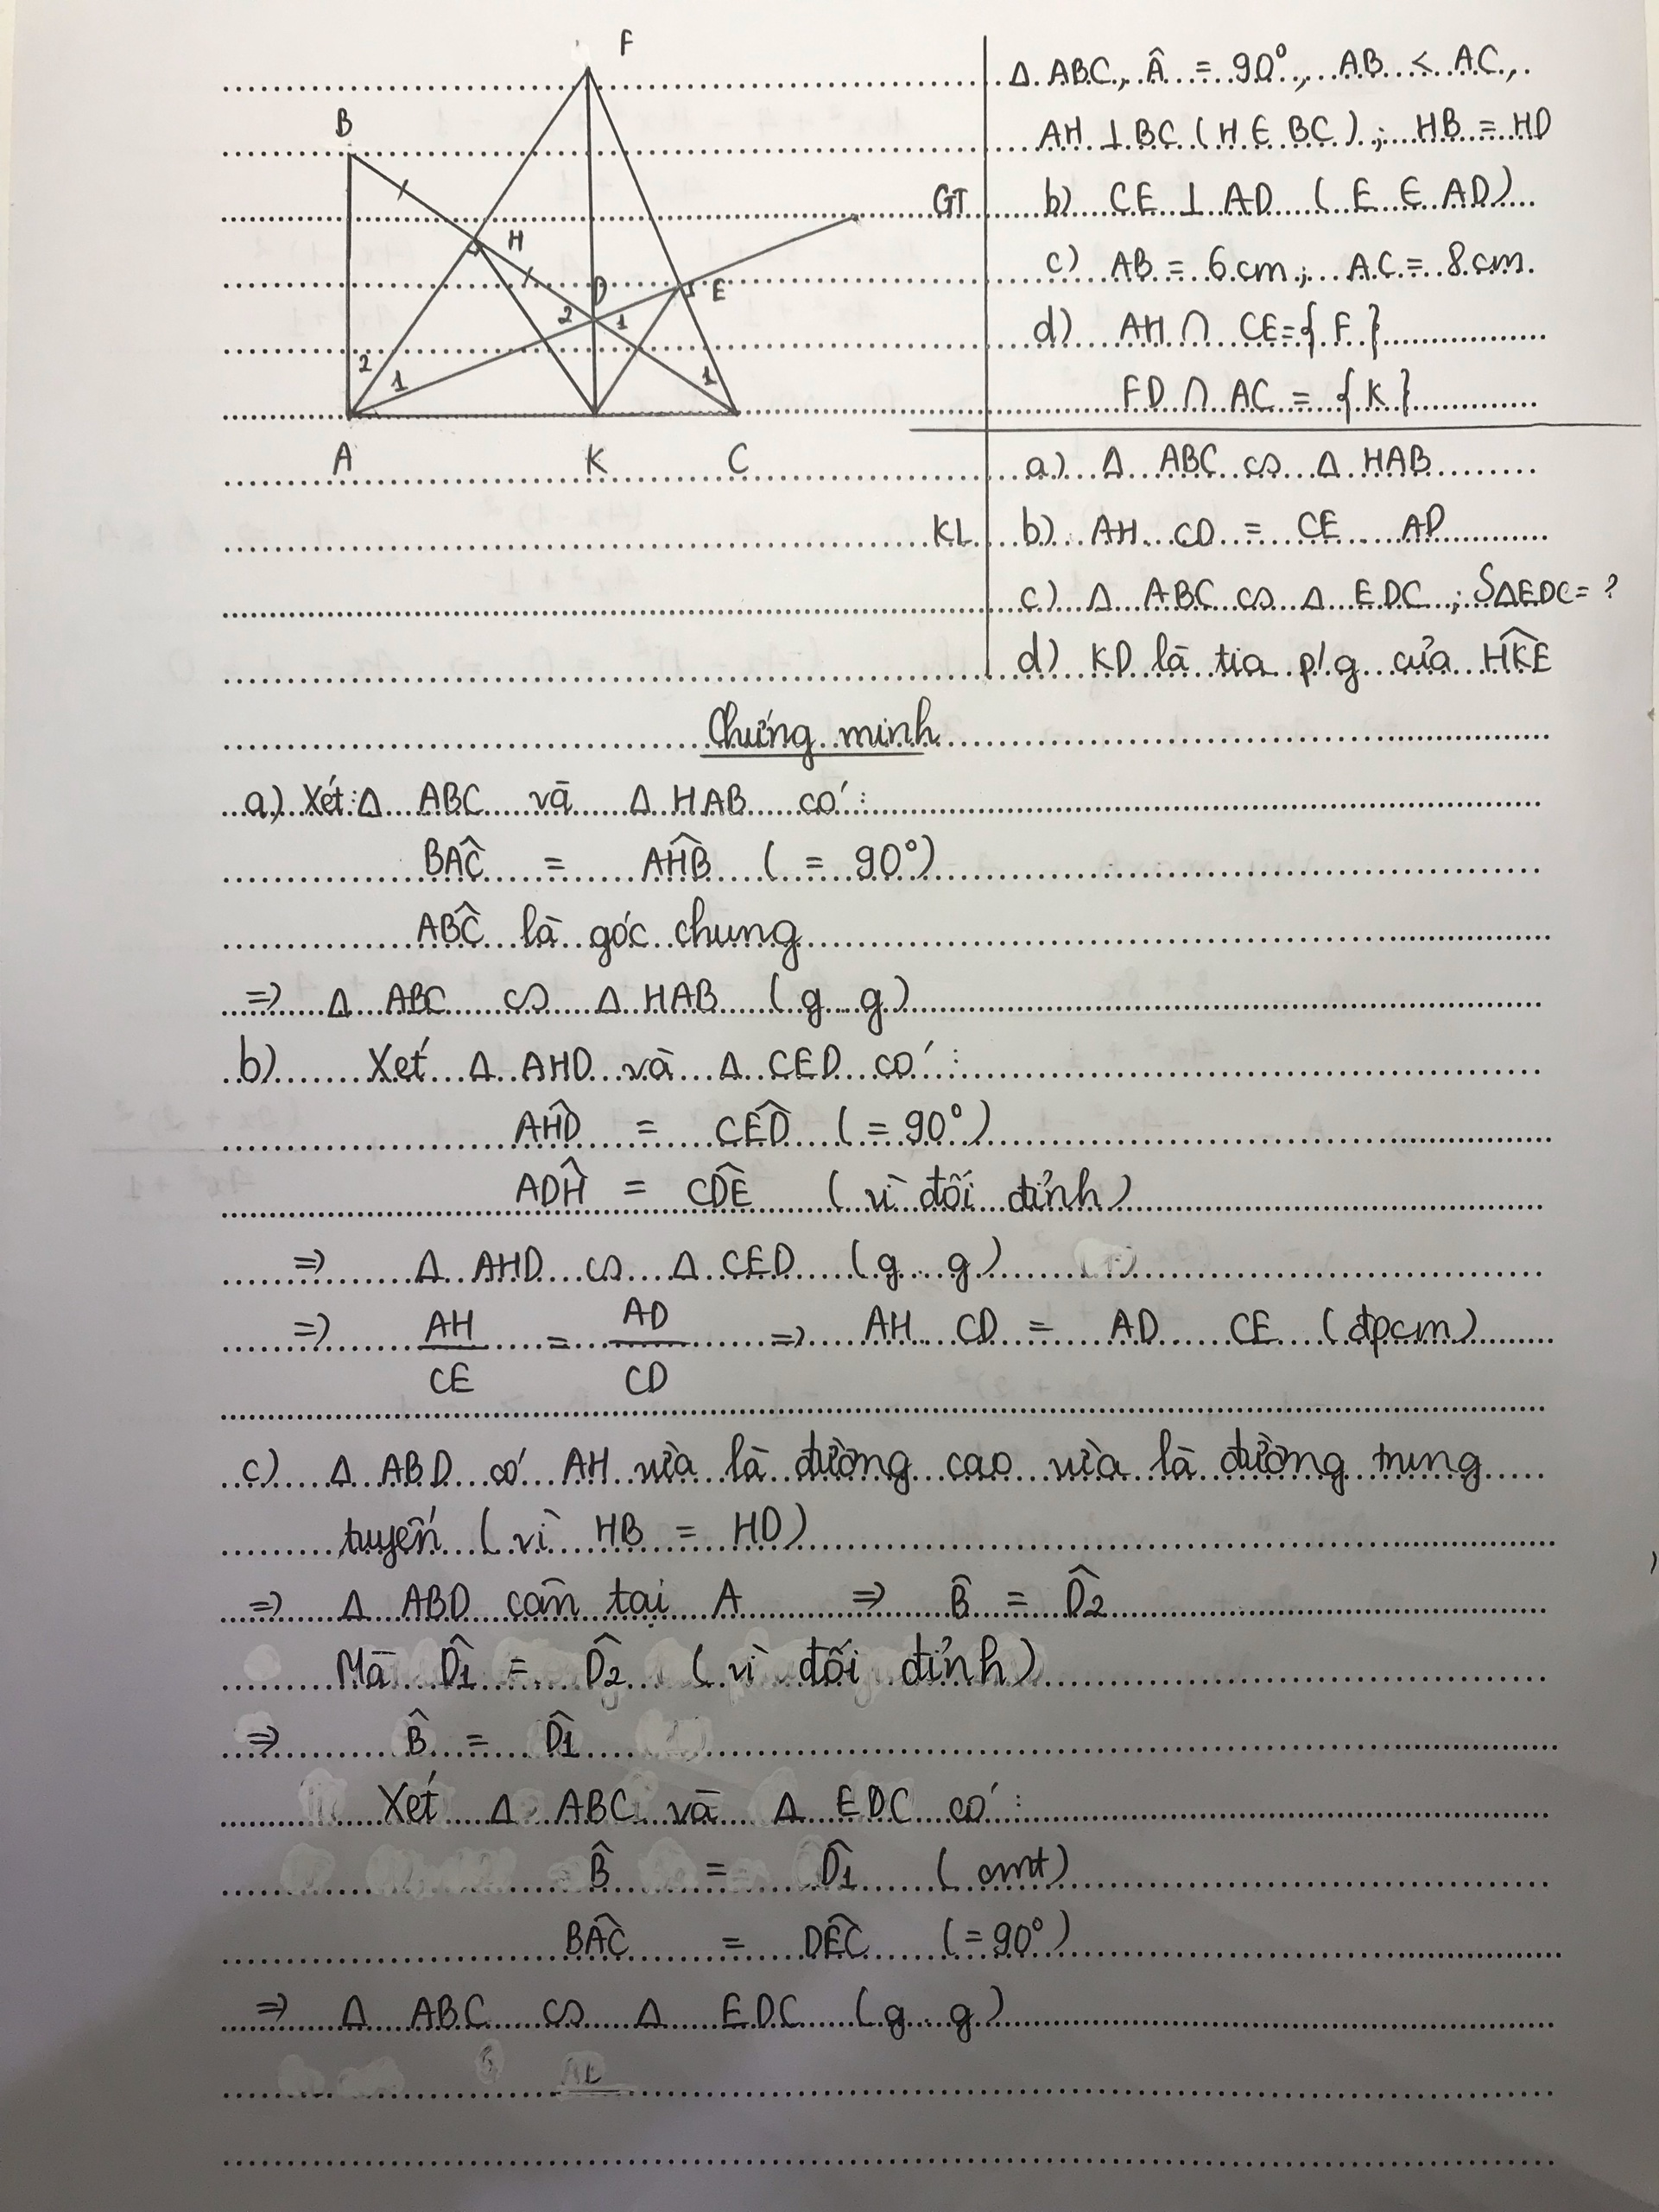 F
B
H
D
E
2
1
2
1
1
A K C
GT
Δ ABC, Â = 90°, AB < AC,
AH ⊥ BC (H ∈ BC); HB = HD
b) CE ⊥ AD (E ∈ AD)
c) AB = 6 cm; AC = 8 cm.
d) AH ∩ CE = {F}
FD ∩ AC = {K}
KL
a) Δ ABC ∽ Δ HAB
b) AH . CD = CE . AD
c) Δ ABC ∽ Δ EDC ; SΔEDC = ?
d) KD là tia p/g của HK̂E
Chứng minh
a) Xét Δ ABC và Δ HAB có:
BAĈ = AĤB (= 90°)
AB̂C là góc chung
⇒ Δ ABC ∽ Δ HAB (g . g)
b) Xét Δ AHD và Δ CED có:
AĤD = CÊD (= 90°)
AD̂H = CD̂E (vì đối đỉnh)
⇒ Δ AHD ∽ Δ CED (g . g)
⇒ AH/CE = AD/CD ⇒ AH . CD = AD . CE (đpcm)
c) Δ ABD có AH vừa là đường cao vừa là đường trung
tuyến (vì HB = HD)
⇒ Δ ABD cân tại A ⇒ B̂ = D̂2
Mà D̂1 = D̂2 (vì đối đỉnh)
⇒ B̂ = D̂1
Xét Δ ABC và Δ EDC có:
B̂ = D̂1 (cmt)
BÂC = DÊC (= 90°)
⇒ Δ ABC ∽ Δ EDC (g . g)